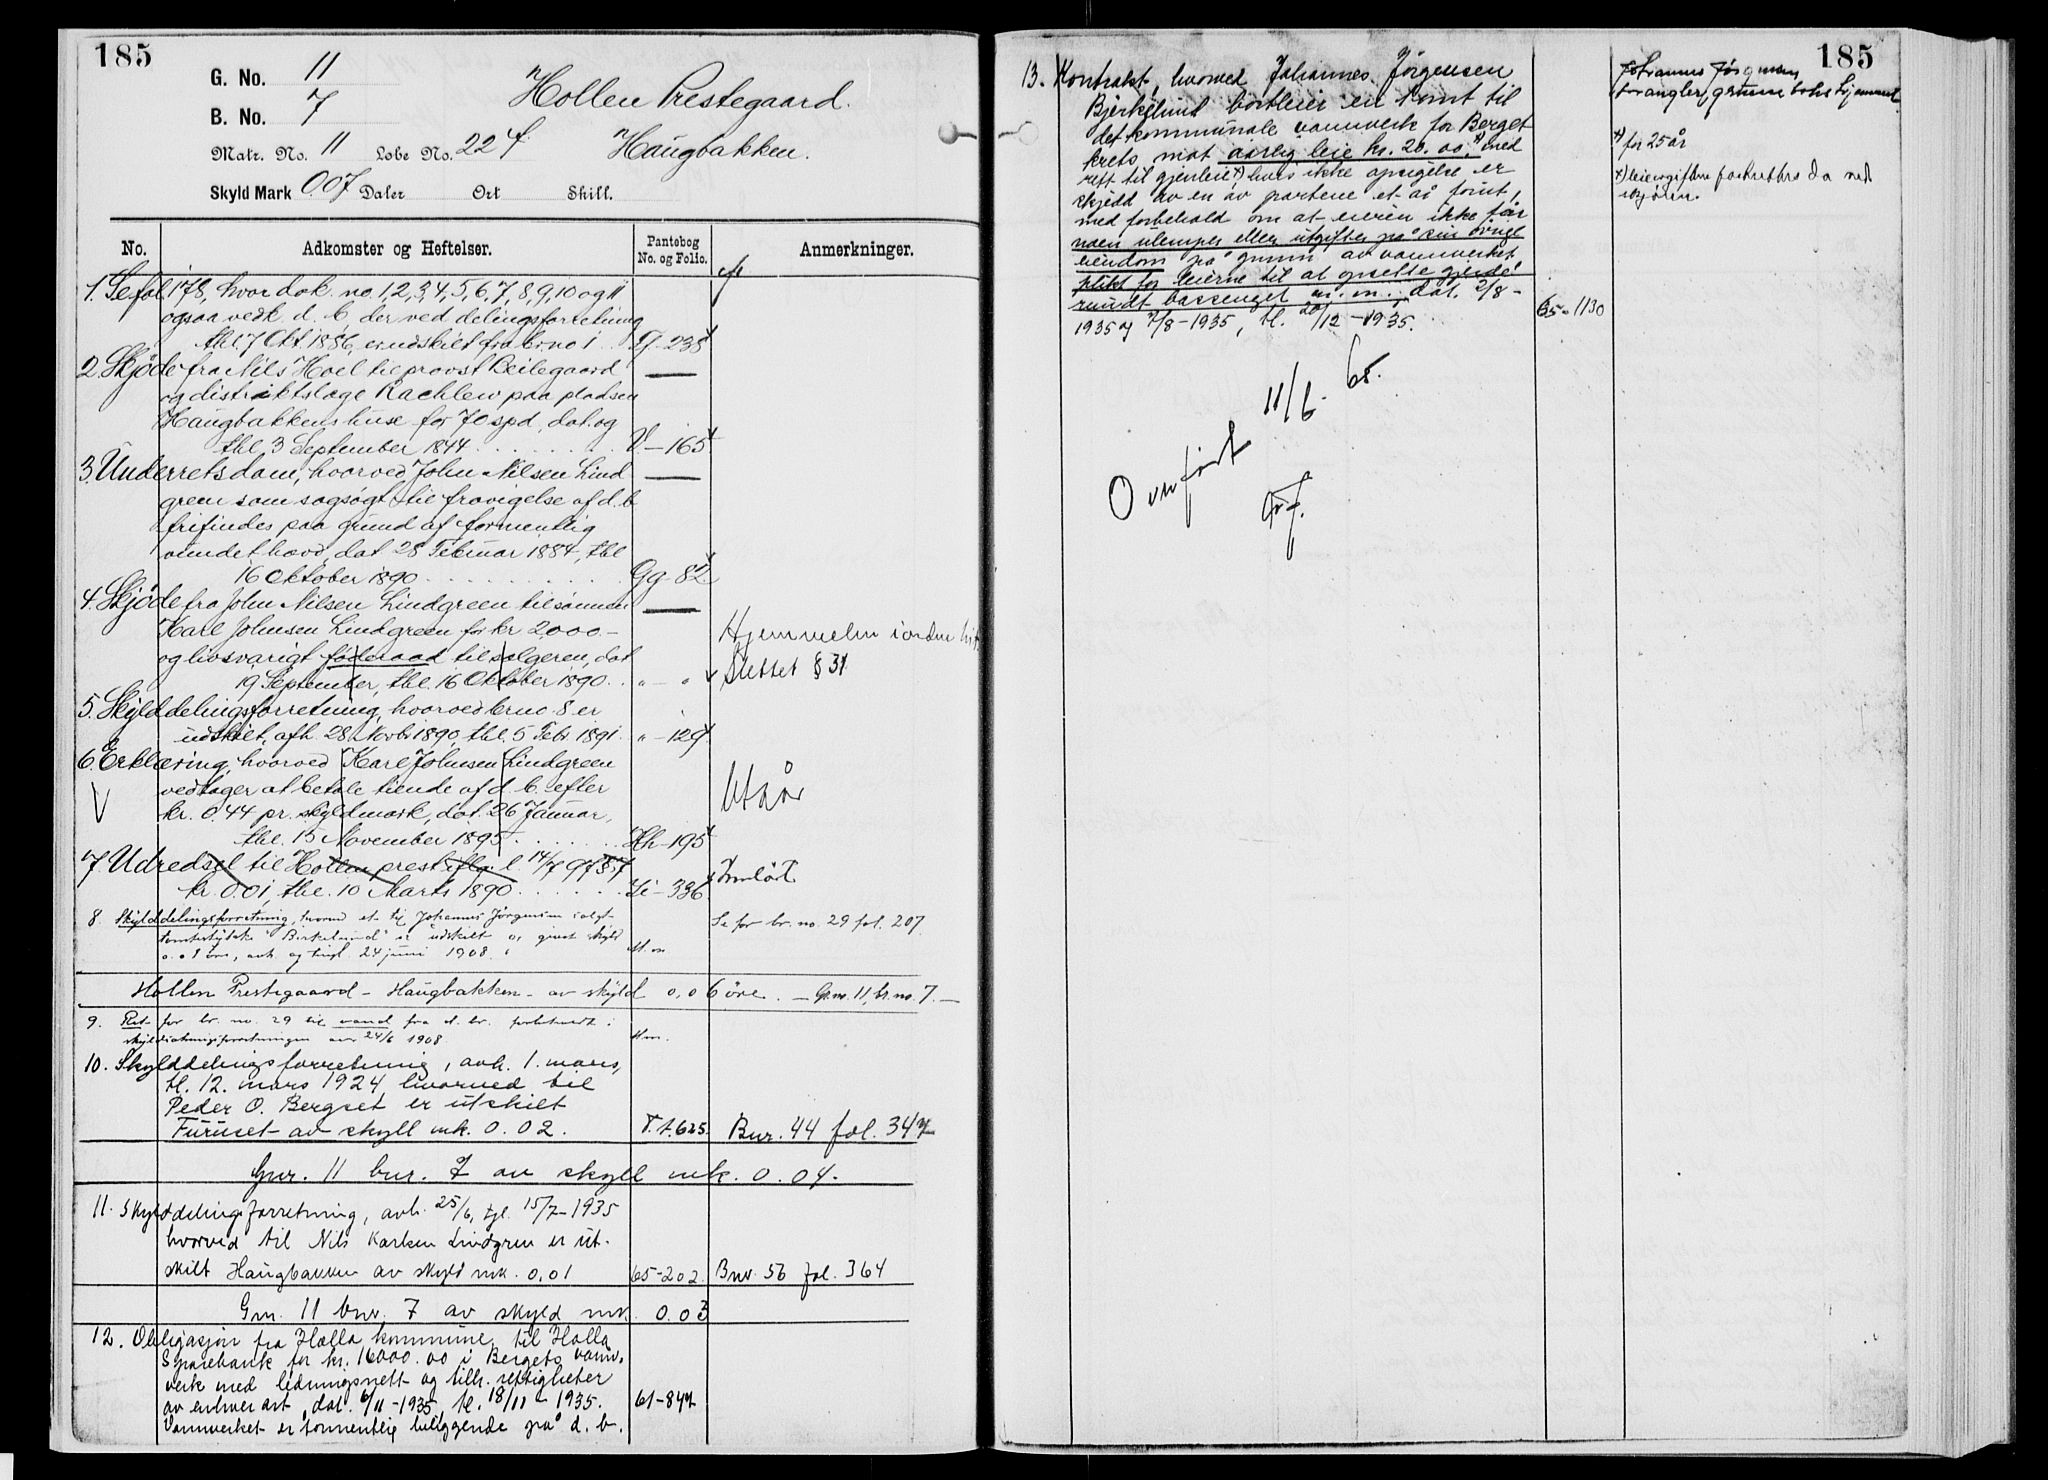 185
G. No. 11
B. No. 7
Hollen Prestegaard.
Matr. No. 11 Løbe No. 224 Haugbakken.
Skyld Mark 007 Daler Ort Skill.
No. Adkomster og Heftelser. Pantebog No. og Folio. Anmerkninger.
1. Se fol. 178, hvor dok. no. 1, 2, 3, 4, 5, 6, 7, 8, 9, 10 og 11
ogsaa vedk. d. b. der ved delingsforretning
thl. 7 Okt. 1886, er udskilt fra br.no 1
2. Skjøde fra Nils Hoel til provst Beilegaard
og distriktslæge Rachlew paa pladsen
Haugbakkens huse for 70 spd, dat. og
thl. 3 September 1844 V - 165
3. Underretsdom, hvorved John Nilsen Lind
green som sagsøgt til fravigelse af d. b.
frifindes paa grund af formentlig
vundet hævd, dat 28 Februar 1884, thl
16 Oktober 1890 Gg - 82
4. Skjøde fra John Nilsen Lindgreen til sønnen
Karl Johnsen Lindgreen for kr 2,000.-
Hjemmelen i orden
og livsvarigt føderaad til sælgeren, dat
19 September, thl. 16 Oktober 1890. " - " Slettet § 31
5. Skylddelingsforretning, hvorved br no 8 er
udskilt, afh. 28 Novbr 1890, thl. 5 Febr 1891. " - 129
6. Erklæring, hvorved Karl Johnsen Lindgreen
vedtager at betale tiende af d. b. efter
kr. 0.44 pr. skyldmark, dat. 26 Januar,
thl. 15 November 1895 Hh - 195
7. Udredsel til Hollen
kr. 0.01, thl. 10 Marts 1890 Li - 336 Innløst
8. Skylddelingsforretning, hvorved et til Johannes Jørgensen solgt
Se for br. no. 29 fol. 207
tomtestykke "Birkelund" er udskilt og givet skyld
0.01 øre, avh. og tingl. 24 juni 1908.
Hollen Prestegaard - Haugbakken - av skyld 0,06 øre. - Gr.no. 11, br.no. 7. -
9. Ret for br. no. 29 til vand fra d. br. forbeholdt i
skylddelingsforretningen av 24/6 1908
10. Skylddelingsforretning, avh. 1. mars,
tl. 12. mars 1924 hvorved til
Peder O. Bergset er utskilt
Furuset av skyll mk. 0.02. T.1.625. Bnr. 44 fol. 347
Gnr. 11 bnr. 7 av skyll mk. 0.04.
11. Skylddelingsforretning, avh. 25/6, tgl. 15/7-1935
hvorved til Nils Karlsen Lindgren er ut-
skilt Haugbakken av skyld mk. 0,01 65-202. Bnr. 56 fol. 364
Gnr. 11 bnr. 7 av skyld mk. 0.03
12. Obligasjon fra Holla kommune til Holla
Sparebank for kr. 16000.00 i Bergets vann-
verk med ledningsnett og tilh. rettigheter
av enhver art, dat. 6/11-1935, tl. 18/11-1935. 61-847
Vannverket er formentlig beliggende på d. b.
185
13. Kontrakt, hvorved Johannes Jørgensen
Bjerkelund bortleier en tomt til
det kommunale vannverk for Berget
krets mot årlig leie kr. 20.00, x) med
rett til gjenleie x) hvis ikke opsigelse er
skjedd av en av partene et år forut,
med forbehold om at eieren ikke får
noen ulemper eller utgifter på sin øvrige
eiendom på grunn av vannverket
plikt for leierne til at opsette gjerde
rundt bassenget m. m., dat. 2/8-
1935 og 7/8-1935, tl. 20/12-1935. 65-1130
Johannes Jørgensen
mangler grunnbokshjemmel
x) for 25 år
x) leieavgiften fastsettes da ved
skjønn.
Overført 11/6. 65.